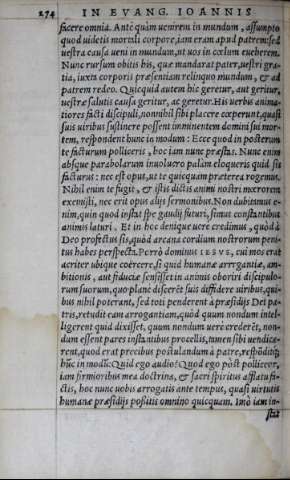 274 IN EVANG. IOANNIS
facere omnia. Antè quàm uenirem in mundum, assumpto
quod uidetis mortali corpore, iam eram apud patrem: sed
uestra causa ueni in mundum, ut uos in cœlum eueherem.
Nunc rursum obitis his, quæ mandarat pater, uestri gra-
tia, iuxta corporis præsentiam relinquo mundum, & ad
patrem redeo. Quicquid autem hic geretur, aut geritur,
uestræ salutis causa geritur, ac geretur. His uerbis anima-
tiores facti discipuli, nonnihil sibi placere cœperunt, quasi
suis uiribus sustinere possent imminentem domini sui mor-
tem, respondent hunc in modum: Ecce quod in posterum
te facturum polliceris, hoc iam nunc præstas. Nunc enim
absque parabolarum inuolucro palàm eloqueris quid sis
facturus: nec est opus, ut te quicquam præterea rogemus.
Nihil enim te fugit, & istis dictis animi nostri mœrorem
exemisti, nec erit opus alijs sermonibus. Non dubitamus e-
nim, quin quod instat spe gaudij futuri, simus constantibus
animis laturi. Et in hoc denique uere credimus, quòd à
Deo profectus sis, quòd arcana cordium nostrorum peni-
tus habes perspecta. Porrò dominus IESVS, cui mos erat
acriter ubique coërcere, si quid humanæ arrogantiæ, am-
bitionis, aut fiduciæ sensisset in animis oboriri discipulo-
rum suorum, quo planè discerēt suis diffidere uiribus, qui-
bus nihil poterant, sed toti penderent à præsidijs Dei pa-
tris, retudit eam arrogantiam, quòd quum nondum intel-
ligerent quid dixisset, quum nondum uerè crederēt, non-
dum essent pares instantibus procellis, tamen sibi uendica-
rent, quod erat precibus postulandum à patre, respōdit in
hūc in modū: Quid ego audio? Quod ego pòst polliceor,
iam firmioribus mea doctrina, & sacri spiritus afflatu fa-
ctis, hoc nunc uobis arrogatis ante tempus, quasi uirtutis
humanæ præsidijs positis omnino quicquam. Imò iam in-
stat